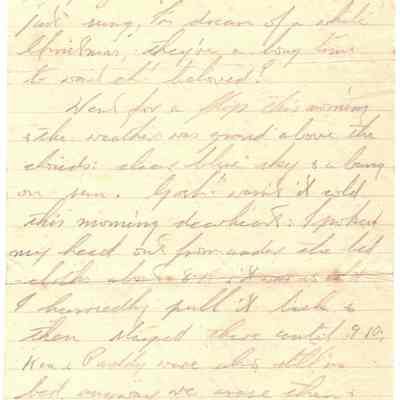 just sung, "I'm dream of a white
Christmas, they're a long time
to wait eh! beloved!
Went for a flip this morning
& the weather was grand above the
clouds: clear blue sky & a bang
on sun. Gosh! wasn't it cold
this morning dearheart: I poked
my head out from under the bed
clothes about 8-15, it was so cold
I hurriedly pull it back &
then stayed there until 9.10,
Ken & Paddy were also still in
bed anyway we arose then